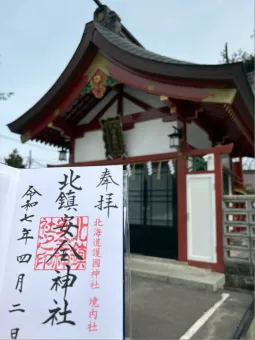 奉拝
北海道護國神社 境内社
北鎮安全神社
令和七年四月二日